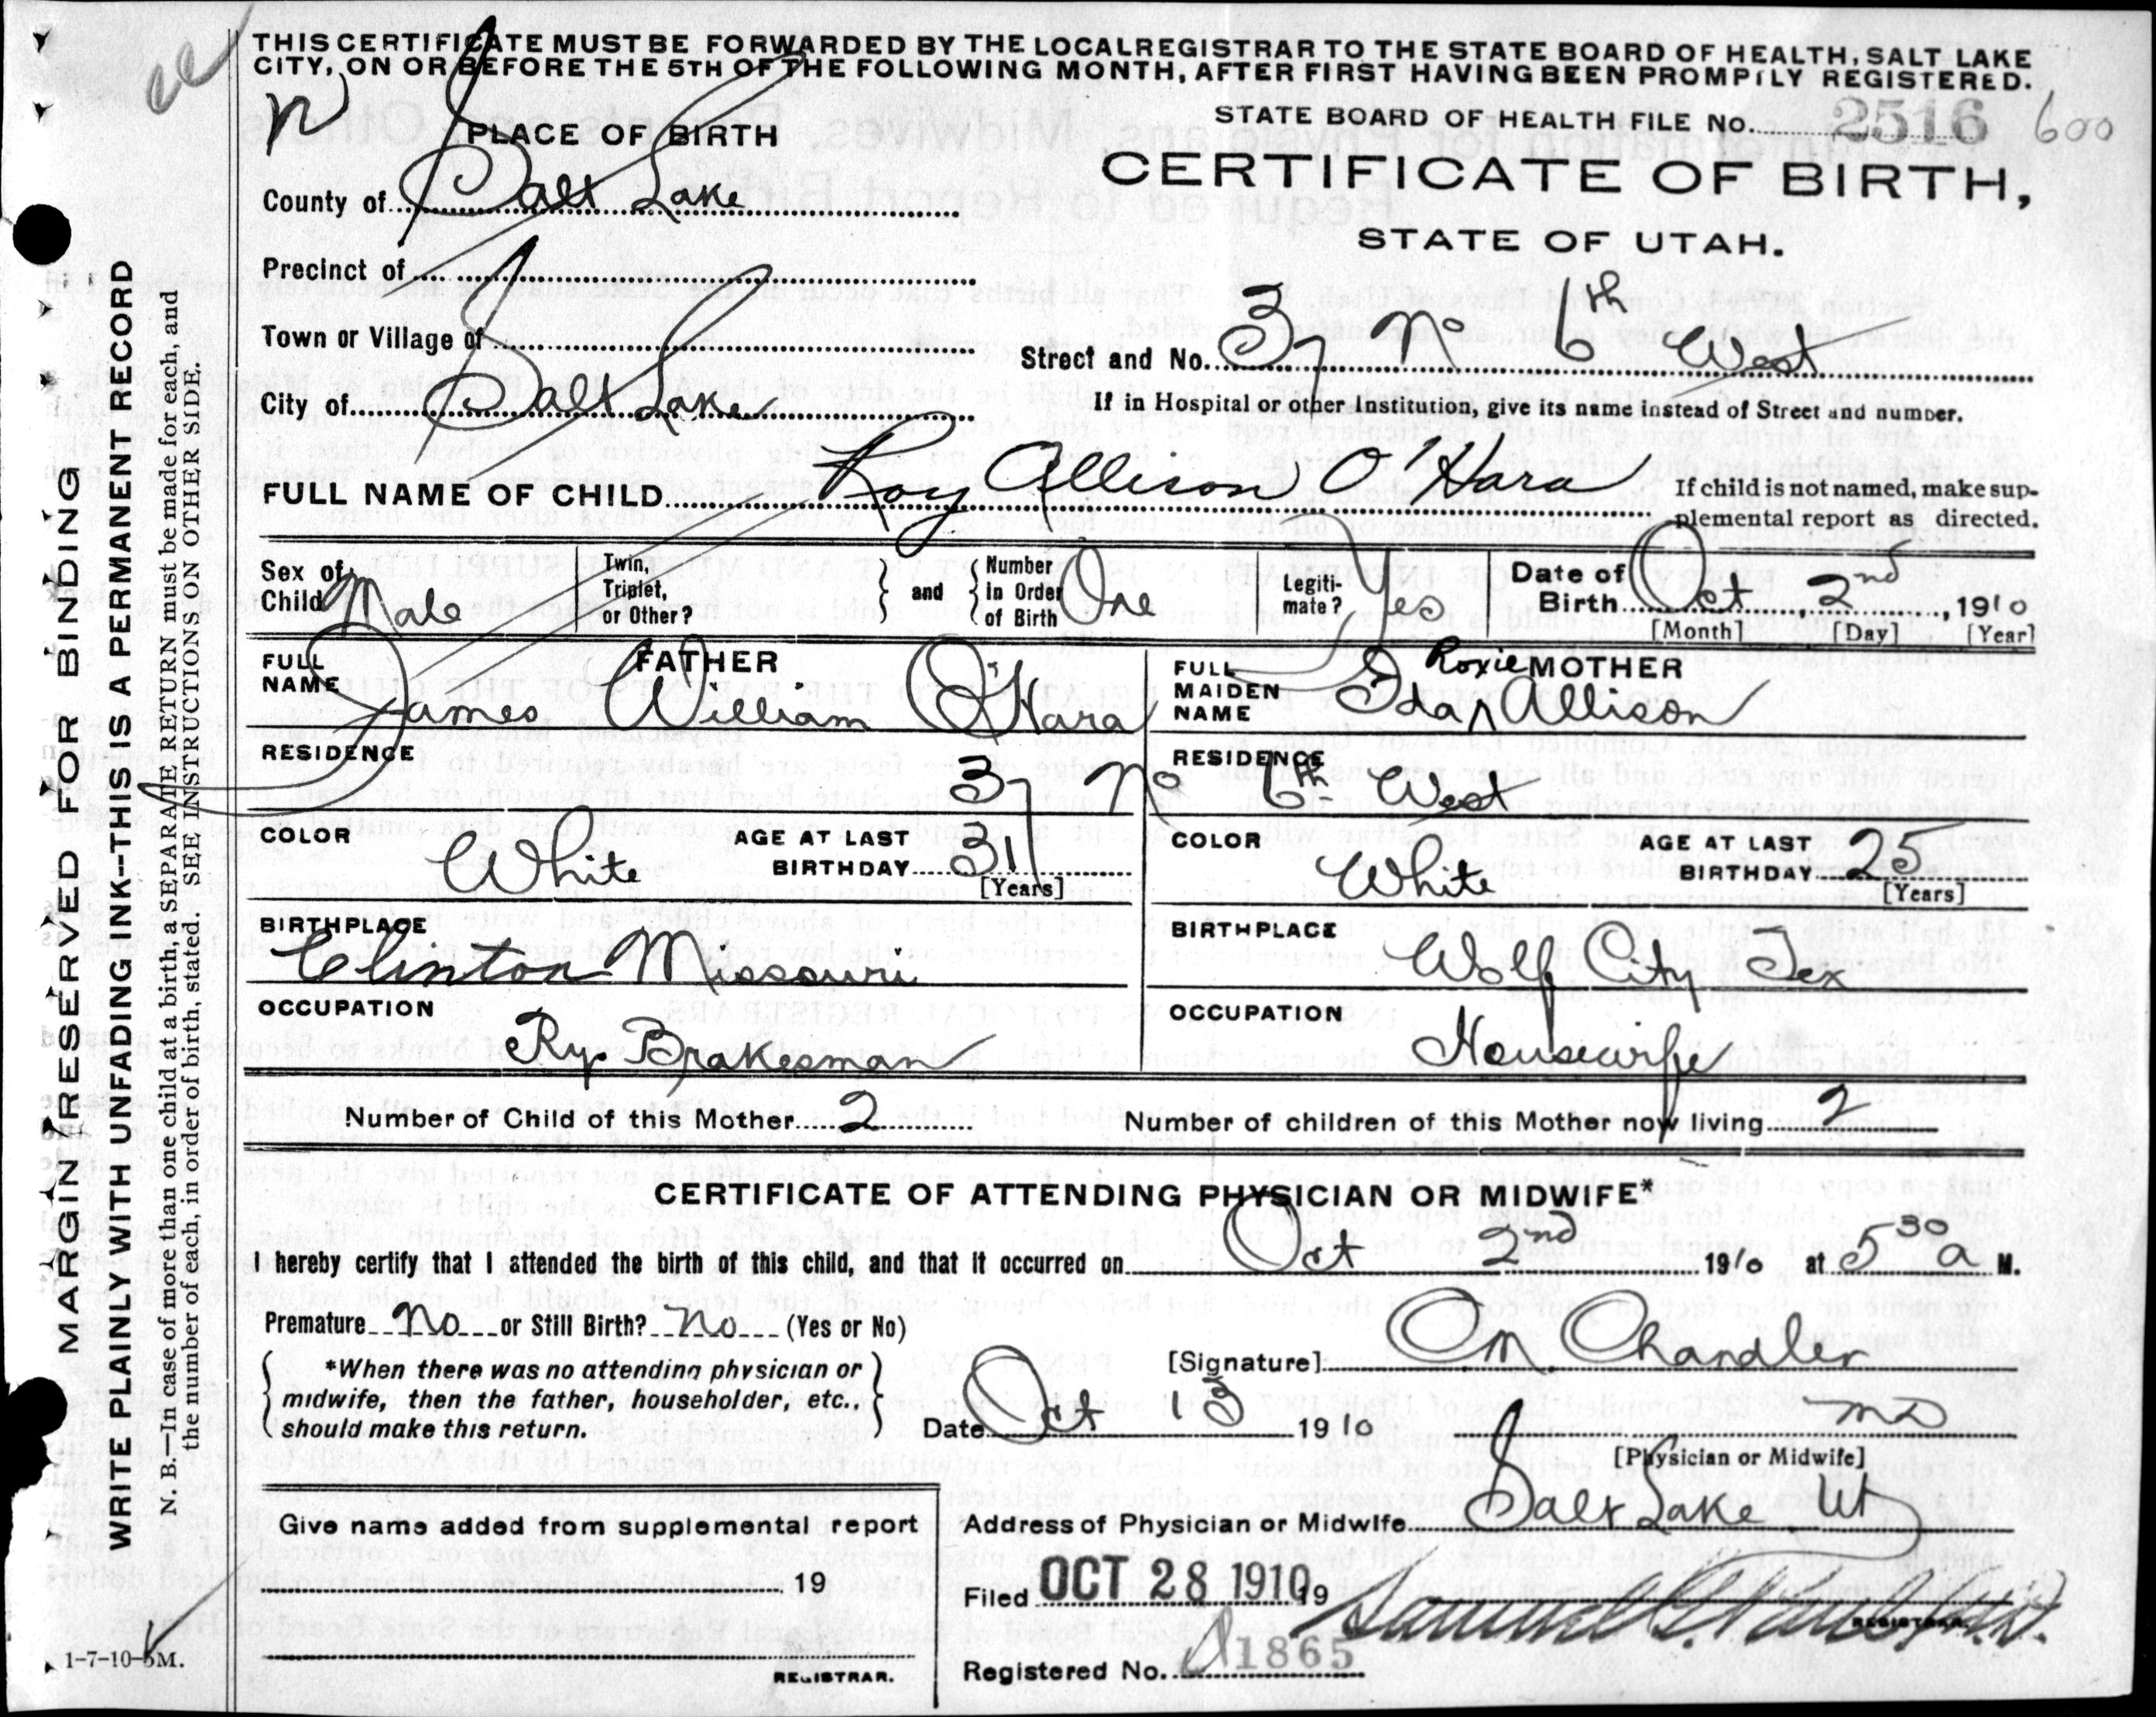 THIS CERTIFICATE MUST BE FORWARDED BY THE LOCAL REGISTRAR TO THE STATE BOARD OF HEALTH, SALT LAKE
CITY, ON OR BEFORE THE 5TH OF THE FOLLOWING MONTH, AFTER FIRST HAVING BEEN PROMPTLY REGISTERED.
STATE BOARD OF HEALTH FILE No. 2516 600
PLACE OF BIRTH
CERTIFICATE OF BIRTH,
STATE OF UTAH.
County of Salt Lake
Precinct of
Town or Village of
City of Salt Lake
Street and No. 37 No 6th West
If in Hospital or other Institution, give its name instead of Street and number.
FULL NAME OF CHILD Roy Allison O'Hara
If child is not named, make sup-
plemental report as directed.
Sex of Child Male
Twin, Triplet, or Other?
and
Number in Order of Birth One
Legiti-mate? Yes
Date of Birth Oct 2nd, 1910
[Month] [Day] [Year]
FATHER
FULL NAME James William O'Hara
MOTHER
FULL MAIDEN NAME Ida ^ Roxie Allison
RESIDENCE
RESIDENCE
37 No 6th West
COLOR White
AGE AT LAST BIRTHDAY 31 [Years]
COLOR White
AGE AT LAST BIRTHDAY 25 [Years]
BIRTHPLACE
Clinton Missouri
BIRTHPLACE
Wolf City Tex
OCCUPATION
Ry. Brakesman
OCCUPATION
Housewife
Number of Child of this Mother 2
Number of children of this Mother now living 2
CERTIFICATE OF ATTENDING PHYSICIAN OR MIDWIFE*
I hereby certify that I attended the birth of this child, and that it occurred on Oct 2nd 1910 at 5 30 a M.
Premature No or Still Birth? No (Yes or No)
*When there was no attending physician or
midwife, then the father, householder, etc.,
should make this return.
[Signature] O M. Chandler
Date Oct 13 1910
MD
[Physician or Midwife]
Address of Physician or Midwife Salt Lake Ut
Give name added from supplemental report
19
REGISTRAR.
Filed OCT 28 1910 19
REGISTRAR.
Registered No. 1865
1-7-10-5M.
MARGIN RESERVED FOR BINDING
WRITE PLAINLY WITH UNFADING INK--THIS IS A PERMANENT RECORD
N. B.—In case of more than one child at a birth, a SEPARATE RETURN must be made for each, and
the number of each, in order of birth, stated. SEE INSTRUCTIONS ON OTHER SIDE.